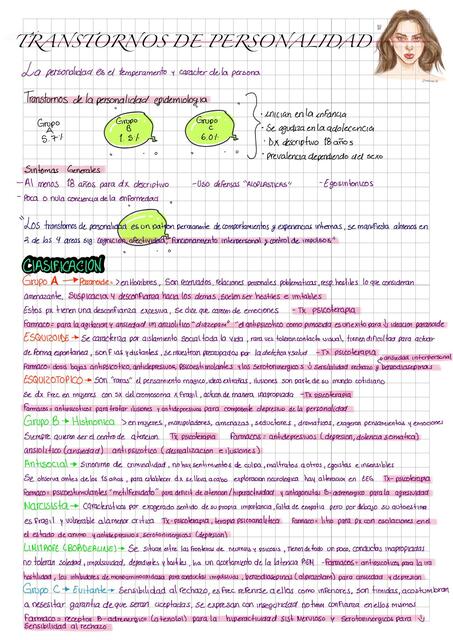 TRANSTORNOS DE PERSONALIDAD
La personalidad es el temperamento y caracter de la persona
Transtornos de la personalidad epidemiologia
Grupo A 5.7%
Grupo B 1.5%
Grupo C 6.0%
· inician en la infancia
· Se agudiza en la adolecencia
· Dx descriptivo 18 años
· Prevalencia dependiendo del sexo
Sintomas Generales
- Al menos 18 años para dx descriptivo
- Uso defensas "ALOPLASTICAS"
- Egosintonicos
- Poca o nula conciencia de la enfermedad
"Los transtornos de personalidad es un patron permanente de comportamientos y experiencias internas, se manifiesta almenos en
2 de las 4 areas sig: cognicion, afectividad, funcionamiento interpersonal y control de impulsos"
CLASIFICACION
Grupo A → Paranoide → > en Hombres, Son recnuados, relaciones personales problematicas, resp. hostiles lo que consideran
amenazante. Suspicacia y desconfianza hacia los demas, suelen ser hostiles e irritables
Estos px tienen una desconfianza excesiva, se dice que carecen de emociones - Tx psicoterapia
Farmaco = para la agitacion y ansiedad un ansiolitico "diazepam" el antipsicotico como pimozida es un exito para ↓ ideacion paranoide
ESQUIZOIDE → Se caracteriza por aislamiento social toda la vida, rara vez toleran contacto visual, tienen dificultas para actuar
de forma espontanea, son frias y distantes, se muestran preocupados por la &
- Tx psicoterapia
Farmaco = dosis bajas antipsicotico, antidepresivos, psicoestimulantes y los serotoninergicos ↓ sensibilidad rechazo y benzodiacepinas
↓ ansiedad interpersonal
ESQUIZOTIPICO → Son "raros" el pensamiento magico, ideas extrañas, ilusiones son parte de su mundo cotidiano
Se dx Frec en mujeres con Sx del cromosoma X Fragil, actuan de manera inapropiada - Tx psicoterapia
Farmacos = antipsicoticos para tratar ilusiones y antidepresivos para componente depresivo de la personalidad
Grupo B → Histrionica > en mujeres, manipuladores, amenazas, seductores, dramaticos, exageran pensamientos y emociones
Siempre quieren ser el centro de atencion Tx psicoterapia Farmacos = antidepresivos (depresion, dolencia somatica)
ansiolitico (ansiedad) antipsicotico (desrealizacion e ilusiones)
Antisocial → Sinonimo de criminalidad, no hay sentimientos de culpa, maltratos a otros, egoistas e insensibles
Se observa antes de los 15 años, para establecer dx se lleva acabo exploracion neurologica hay alteracion en EEG Tx psicoterapia
Farmaco = psicoestimulantes "metilfenidato" para deficit de atencion / hiperactividad y antagonistas B-adrenergico para la agresividad
Narcisista → Caracteristicas por exagerado sentido de su propia importancia, falta de empatia pero por debajo su autoestima
es fragil y vulnerable a la menor critica Tx= psicoterapia, terapia psicoanalitica Farmaco = litio para px con oscilaciones en el
el estado de animo y antidepresivos serotoninergicos (depresion)
LIMITROFE (BORDERLINE) → Se situan entre las fronteras de neurosis y psicosis, Tienen de todo un poco, conductas inapropiadas
no toleran soledad, impulsividad, dependientes y hostiles, hay un acortamiento de la latencia REM - Farmacos = antipsicoticos para la ira
hostilidad, los inhibidores de monoaminooxidasa para conductas impulsivas, benzodiacepinas (alprazolam) para ansiedad y depresion
Grupo C → Evitante → Sensibilidad al rechazo, es frec referirse a ellos como inferiores, son timidas, acostumbran
a necesitar garantia de que seran aceptadas, se expresan con inseguridad no tienen confianza en ellos mismos
Farmacos = receptor B-adrenergico (atenolol) para la hiperactividad sist Nervioso y Serotoninergicos para ↓
Sensibilidad al rechazo